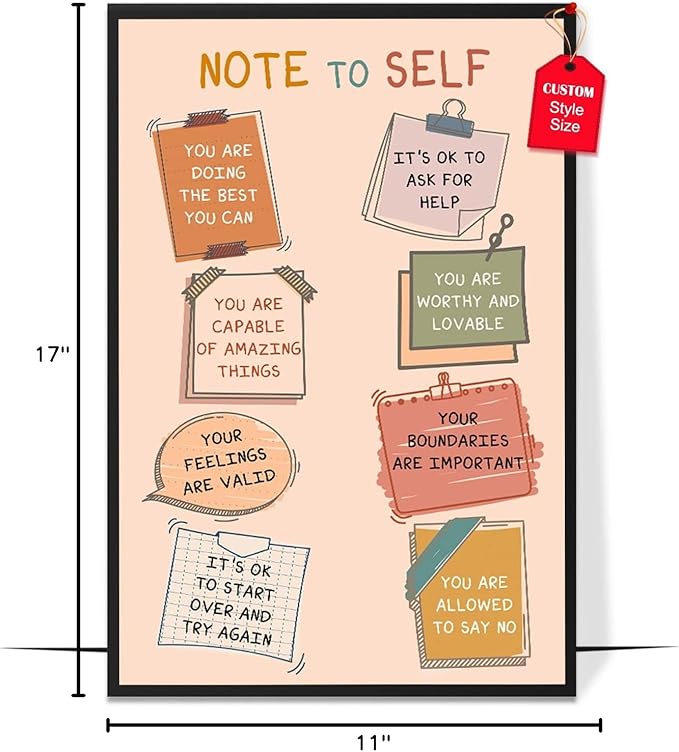 NOTE TO SELF
CUSTOM
Style
Size
YOU ARE
DOING
THE BEST
YOU CAN
IT'S OK TO
ASK FOR
HELP
YOU ARE
CAPABLE
OF AMAZING
THINGS
YOU ARE
WORTHY AND
LOVABLE
YOUR
FEELINGS
ARE VALID
YOUR
BOUNDARIES
ARE IMPORTANT
IT'S OK
TO START
OVER AND
TRY AGAIN
YOU ARE
ALLOWED
TO SAY NO
17"
11"